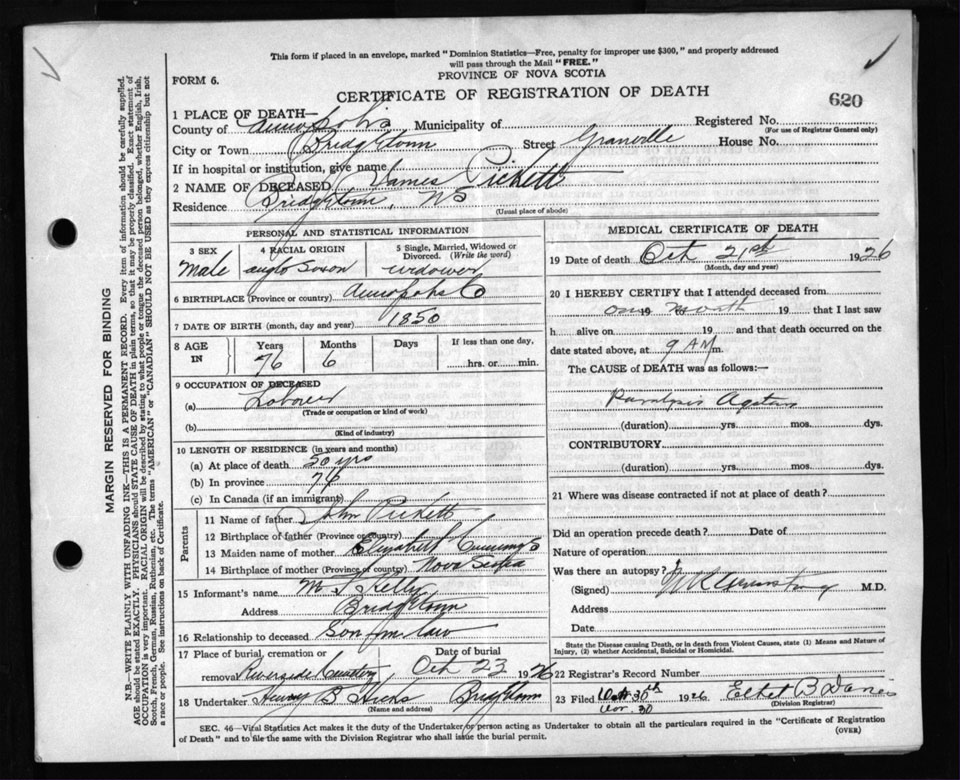 This form if placed in an envelope, marked "Dominion Statistics—Free, penalty for improper use $300," and properly addressed
will pass through the Mail "FREE."
FORM 6.
PROVINCE OF NOVA SCOTIA
CERTIFICATE OF REGISTRATION OF DEATH
620
1 PLACE OF DEATH—
County of Annapolis Municipality of
Registered No.
(For use of Registrar General only)
City or Town Bridgetown Street Granville House No.
If in hospital or institution, give name
2 NAME OF DECEASED James Pickett
Residence Bridgetown, NS
(Usual place of abode)
PERSONAL AND STATISTICAL INFORMATION
3 SEX
Male
4 RACIAL ORIGIN
anglo Saxon
5 Single, Married, Widowed or
Divorced. (Write the word)
widower
6 BIRTHPLACE (Province or country) Annapolis Co
7 DATE OF BIRTH (month, day and year) 1850
8 AGE
IN
Years
76
Months
6
Days
If less than one day,
hrs. or min.
9 OCCUPATION OF DECEASED
(a) Laborer
(Trade or occupation or kind of work)
(b)
(Kind of industry)
10 LENGTH OF RESIDENCE (in years and months)
(a) At place of death 50 yrs
(b) In province 76
(c) In Canada (if an immigrant)
Parents
11 Name of father John Pickett
12 Birthplace of father (Province or country)
13 Maiden name of mother Elizabeth Cummings
14 Birthplace of mother (Province or country) Nova Scotia
15 Informant's name Kelly
Address Bridgetown
16 Relationship to deceased Son in law
17 Place of burial, cremation or
removal Riverside Cemetery
Date of burial
Oct 23 1926
18 Undertaker Henry B Hicks Bridgetown
(Name and address)
MEDICAL CERTIFICATE OF DEATH
19 Date of death Oct 21st 1926
(Month, day and year)
20 I HEREBY CERTIFY that I attended deceased from
one 19 month 19 that I last saw
h alive on 19 and that death occurred on the
date stated above, at 9 AM m.
The CAUSE of DEATH was as follows:—
Paralysis Agitans
(duration) yrs. mos. dys.
CONTRIBUTORY
(duration) yrs. mos. dys.
21 Where was disease contracted if not at place of death?
Did an operation precede death? Date of
Nature of operation
Was there an autopsy?
(Signed) Armstrong M.D.
Address
Date
State the Disease causing Death, or in death from Violent Causes, state (1) Means and Nature of
Injury, (2) whether Accidental, Suicidal or Homicidal.
22 Registrar's Record Number
23 Filed Oct 30th 1926 Ethel B
Nov. 30
(Division Registrar)
SEC. 46—Vital Statistics Act makes it the duty of the Undertaker or person acting as Undertaker to obtain all the particulars required in the "Certificate of Registration
of Death" and to file the same with the Division Registrar who shall issue the burial permit.
(OVER)
MARGIN RESERVED FOR BINDING
N.B.—WRITE PLAINLY WITH UNFADING INK—THIS IS A PERMANENT RECORD. Every item of information should be carefully supplied.
AGE should be stated EXACTLY. PHYSICIANS should STATE CAUSE OF DEATH in plain terms, so that it may be properly classified. Exact statement of
OCCUPATION is very important. RACIAL ORIGIN will be described by stating to what people or tongue the deceased person belonged, whether English, Irish,
Scotch, French, German, Russian, Ruthenian, etc. The terms "AMERICAN" or "CANADIAN" SHOULD NOT BE USED as they express citizenship but not
a race or people. See instructions on back of Certificate.